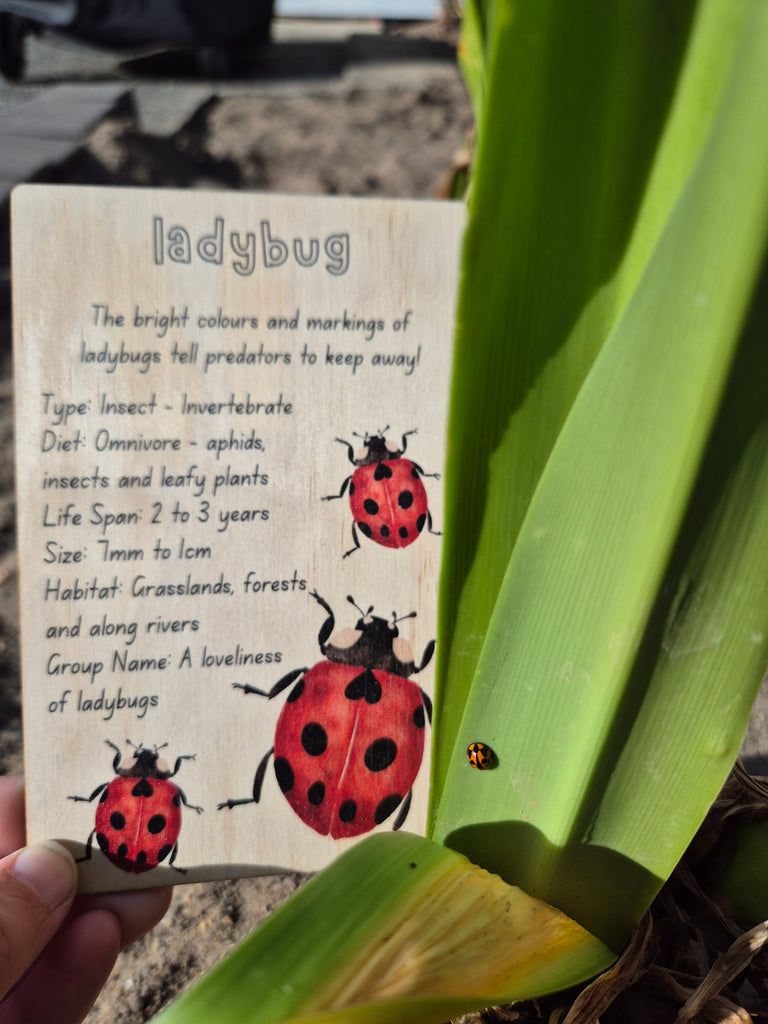 ladybug
The bright colours and markings of
ladybugs tell predators to keep away!
Type: Insect - Invertebrate
Diet: Omnivore - aphids,
insects and leafy plants
Life Span: 2 to 3 years
Size: 7mm to 1cm
Habitat: Grasslands, forests
and along rivers
Group Name: A loveliness
of ladybugs